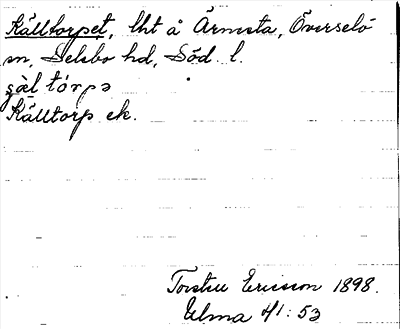 Källtorpet, lht å Ärmsta, Överselö
sn, Selebo hd, Söd. l.
çàl tórpə
Källtorp ek.
Torsten Ericsson 1898.
Elma 41:53